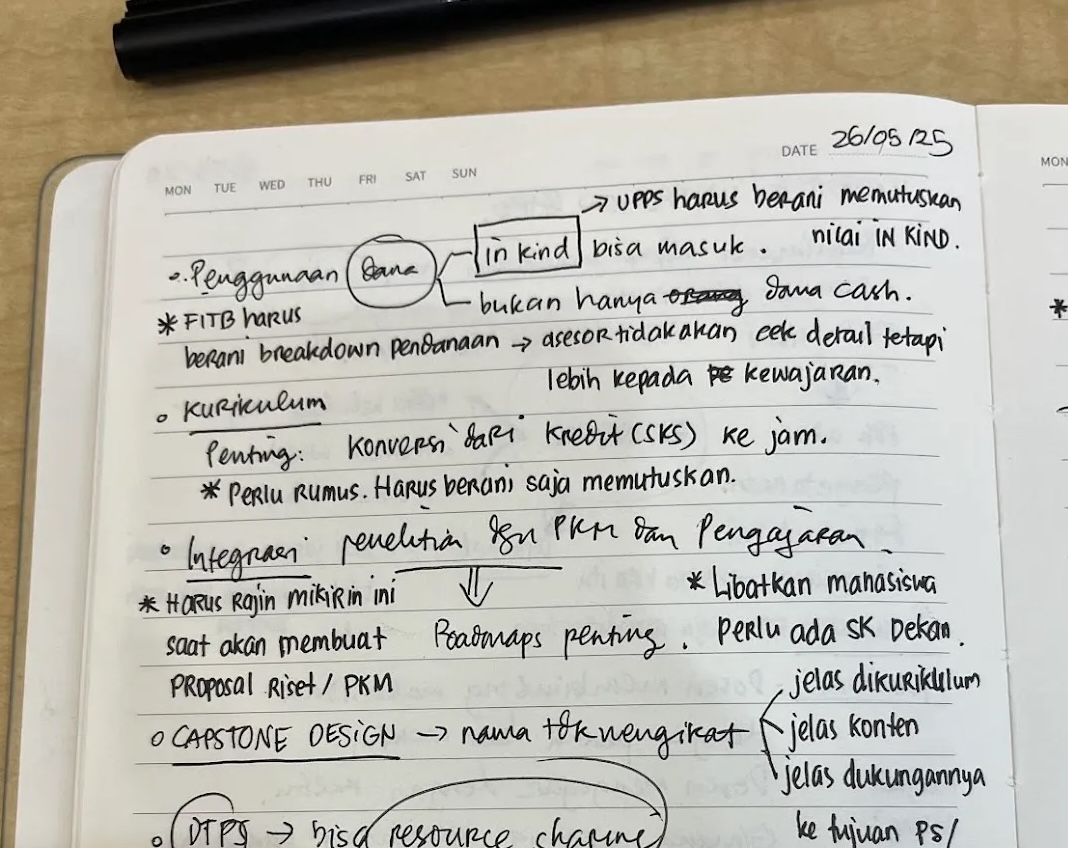 MON TUE WED THU FRI SAT SUN
DATE 26/05/25
→ UPPS harus berani memutuskan
nilai IN KIND.
in kind bisa masuk.
Penggunaan Dana
bukan hanya orang dana cash.
* FITB harus
berani breakdown pendanaan → asesor tidak akan cek detail tetapi
lebih kepada ke kewajaran.
KURIKULUM
Penting: Konversi dari Kredit (SKS) ke jam.
* Perlu rumus. Harus berani saja memutuskan.
Integrasi penelitian dgn PKM dan Pengajaran.
* Harus Rajin mikirin ini
saat akan membuat
Proposal Riset/PKM
Roadmaps penting.
* Libatkan mahasiswa
Perlu ada SK Dekan.
CAPSTONE DESIGN → nama tdk mengikat
jelas dikurikulum
jelas konten
jelas dukungannya
ke tujuan PS/
DTPS → bisa resource sharing
MON
*